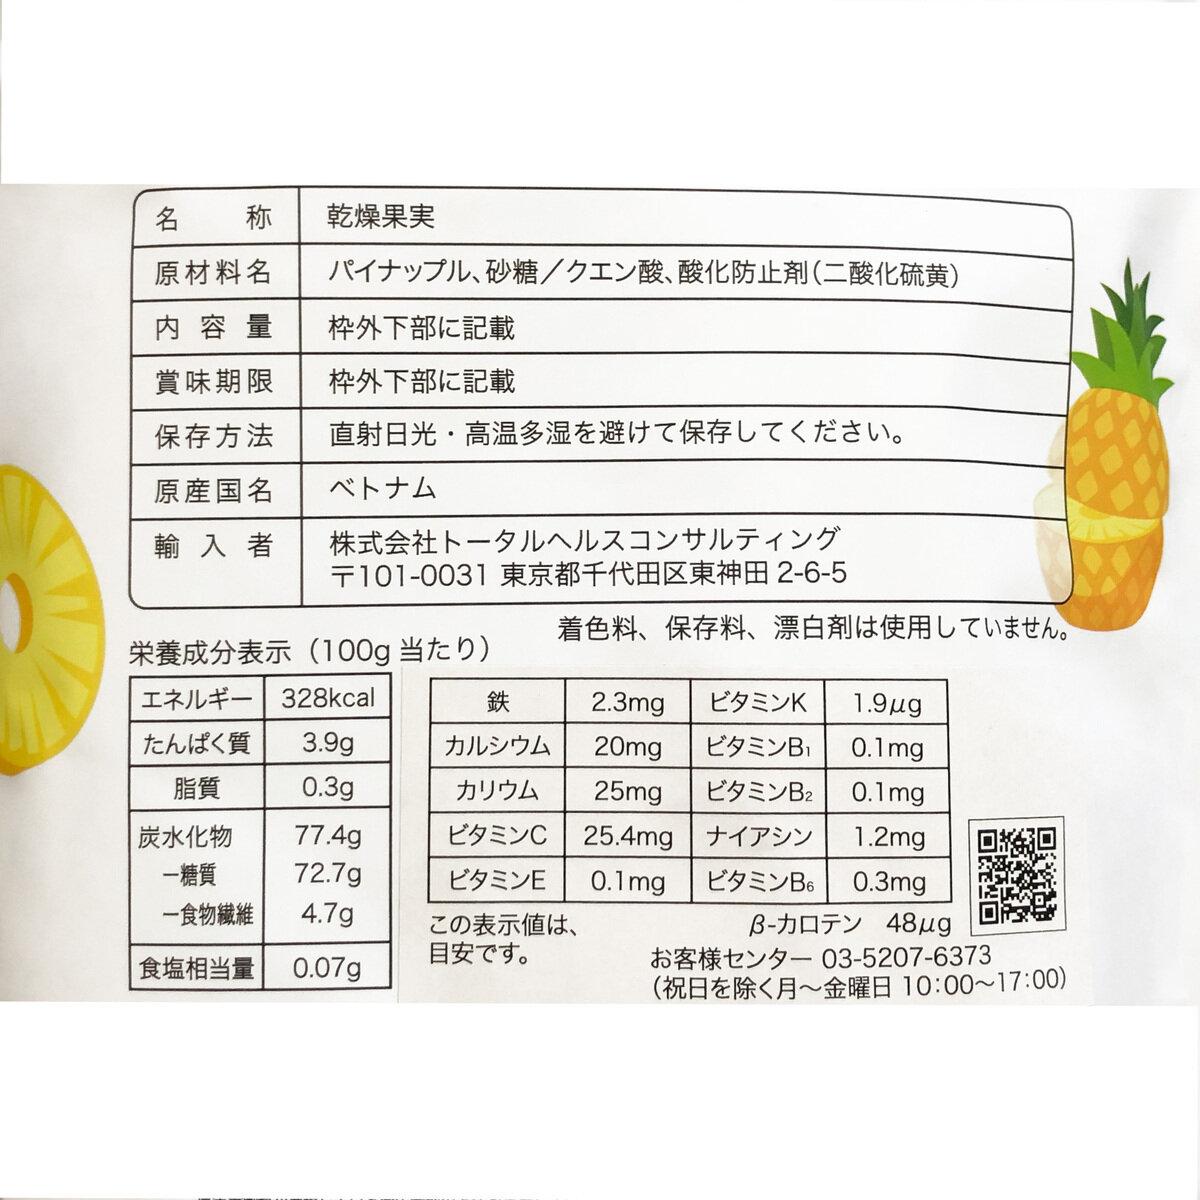 名称 乾燥果実
原材料名 パイナップル、砂糖／クエン酸、酸化防止剤(二酸化硫黄)
内容量 枠外下部に記載
賞味期限 枠外下部に記載
保存方法 直射日光・高温多湿を避けて保存してください。
原産国名 ベトナム
輸入者 株式会社トータルヘルスコンサルティング
〒101-0031 東京都千代田区東神田 2-6-5
着色料、保存料、漂白剤は使用していません。
栄養成分表示（100g 当たり）
エネルギー 328kcal
たんぱく質 3.9g
脂質 0.3g
炭水化物 77.4g
ー糖質 72.7g
ー食物繊維 4.7g
食塩相当量 0.07g
鉄 2.3mg ビタミンK 1.9μg
カルシウム 20mg ビタミンB₁ 0.1mg
カリウム 25mg ビタミンB₂ 0.1mg
ビタミンC 25.4mg ナイアシン 1.2mg
ビタミンE 0.1mg ビタミンB₆ 0.3mg
この表示値は、
目安です。
β-カロテン 48μg
お客様センター 03-5207-6373
（祝日を除く月〜金曜日 10:00〜17:00）